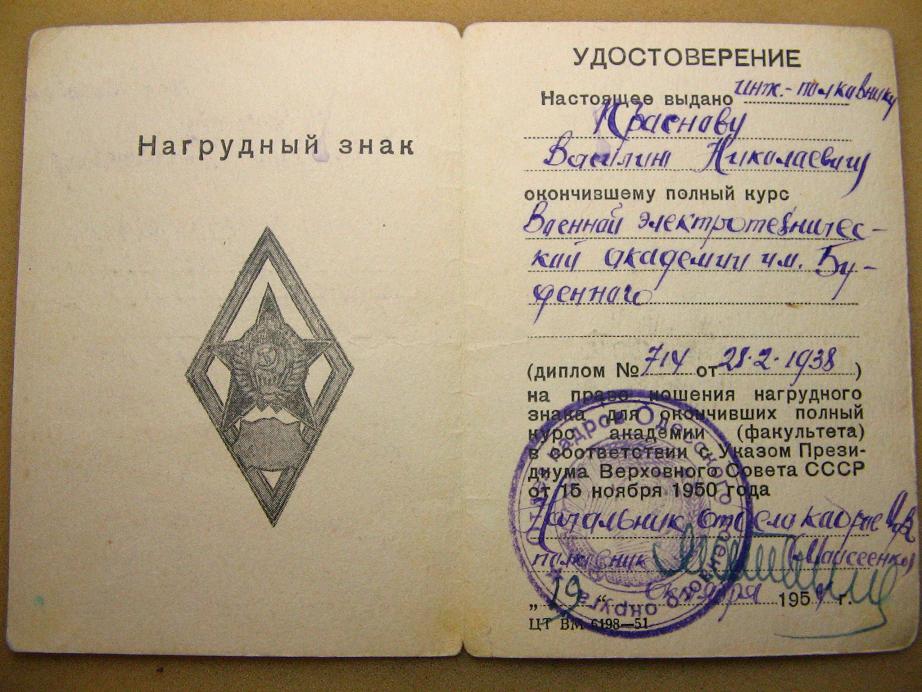 Нагрудный знак
УДОСТОВЕРЕНИЕ
Настоящее выдано инж.-полковнику
Краснову
Василию Николаевичу
окончившему полный курс
Военной электротехничес-
кой академии им. Бу-
денного
(диплом № 714 от 28.2.1938)
на право ношения нагрудного
знака для окончивших полный
курс академии (факультета)
в соответствии с Указом Прези-
диума Верховного Совета СССР
от 15 ноября 1950 года
Начальник отдела кадров
полковник (Моисеенко)
„19“ октября 195 г.
ЦТ ВМ 6198—51
Отдел кадров Одесского военного округа